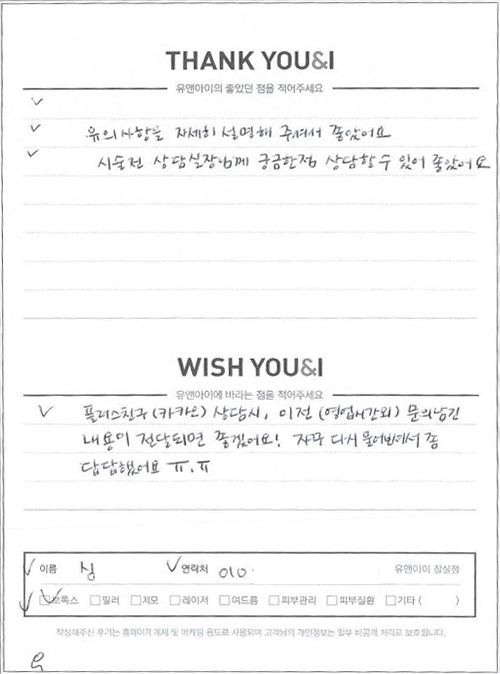 THANK YOU&I
유앤아이의 좋았던 점을 적어주세요
유의사항을 자세히 설명해 주셔서 좋았어요
시술전 상담실장님께 궁금한점 상담할 수 있어 좋았어요
WISH YOU&I
유앤아이에 바라는 점을 적어주세요
플러스친구 (카카오) 상담시, 이전 (영업시간외) 문의남긴
내용이 전달되면 좋겠어요! 자꾸 다시 물어보셔서 좀
답답했어요 ㅠ.ㅠ
이름 심 연락처 010· 유앤아이 잠실점
보톡스 필러 제모 레이저 여드름 피부관리 피부질환 기타 ( )
작성해주신 후기는 홈페이지 게재 및 마케팅 용도로 사용되며 고객님의 개인정보는 일부 비공개 처리로 보호됩니다.